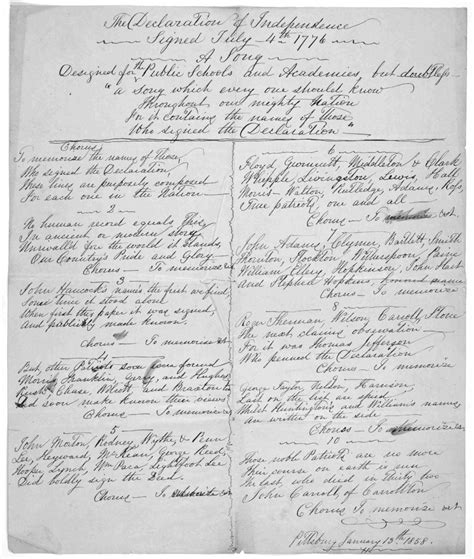 The Declaration of Independence
Signed July 4th 1776
A Song
Designed for the Public Schools and Academies, but
"a song which every one should know
Throughout our mighty Nation
For it contains the names of those
Who signed the Declaration"
Chorus
To memorise the names of those
Who signed the Declaration
These lines are purposely composed
For each one in the Nation
2
No human record equals this,
In ancient or modern story
Unrivall'd for the world it stands,
Our Country's Pride and Glory
Chorus — To memorize &ct
3
John Hancock's names the first we find,
it stood alone
When first the paper it was signed,
And publicly made known.
Chorus — To memorize
4
But, other Patriots soon came forward
Morris, Franklin, Gerry, and Hughes
Rush, Chase, Wilson and Braxton to
Did soon make known their views
Chorus — To memorize
5
John Morton, Rodney, Wythe, & Penn
Lee, Heyward, McKean, George Read,
Hooper, Lynch, Wm Paca, Lightfoot Lee
Did boldly sign the Deed.
Chorus — To &ct
6
Floyd, Gwinnett, Middleton & Clark
Whipple, Livingston, Lewis, Hall
Morris, Walton, Rutledge, Adams, Ross,
True Patriots, one and all
Chorus — To memorize &ct.
7
John Adams, Clymer, Bartlett, Smith
Thornton, Stockton, Witherspoon,
William Ellery, Hopkinson, John Hart
And Stephen Hopkins,
Chorus — To memorize &ct
8
Roger Sherman, Wilson, Carroll, Stone
We next claims observation
For it was Thomas Jefferson
Who penned the Declaration
Chorus — To memorize
George Taylor, Nelson, Harrison,
Last on the list are spied
Whilst Huntington's and William's names,
are written on the side.
Chorus — To memorize
10
Those noble Patriots are no more
Their course on earth is run
The last who died in thirty two
John Carroll of Carrollton
Chorus To memorize &ct.
Pittsburg January 13th 1858.